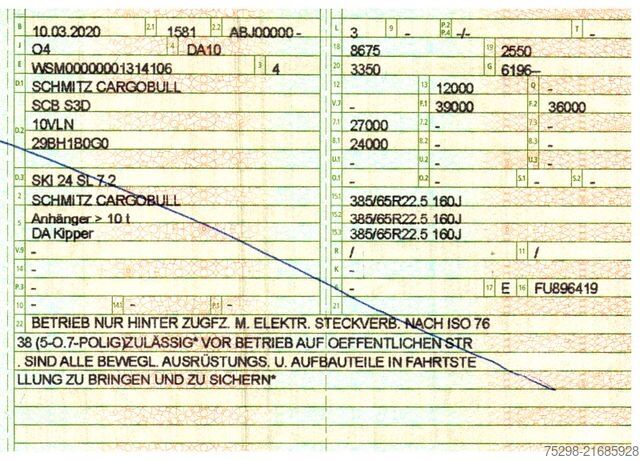 B 10.03.2020 2.1 1581 2.2 ABJ00000- L 3 9 - P.2 P.4 -/- T -
J O4 4 DA10 18 8675 19 2550
E WSM00000001314106 3 4 20 3350 G 6196--
D.1 SCHMITZ CARGOBULL 13 12000 Q -
SCB S3D V.7 - F.1 39000 F.2 36000
D.2 10VLN 7.1 27000 7.2 - 7.3 -
29BH1B0G0 8.1 24000 8.2 - 8.3 -
U.1 - U.2 - U.3 -
D.3 SKI 24 SL 7.2 O.1 - O.2 - S.1 - S.2 -
2 SCHMITZ CARGOBULL 15.1 385/65R22.5 160J
5 Anhänger > 10 t 15.2 385/65R22.5 160J
DA Kipper 15.3 385/65R22.5 160J
V.9 - R / 11 /
14 - K -
P.3 - 6 - 17 E 16 FU896419
10 - 14.1 - P.1 - 21
22 BETRIEB NUR HINTER ZUGFZ. M. ELEKTR. STECKVERB. NACH ISO 76
38 (5-O.7-POLIG)ZULÄSSIG* VOR BETRIEB AUF OEFFENTLICHEN STR
. SIND ALLE BEWEGL. AUSRÜSTUNGS. U. AUFBAUTEILE IN FAHRTSTE
LLUNG ZU BRINGEN UND ZU SICHERN*
75298-21685928